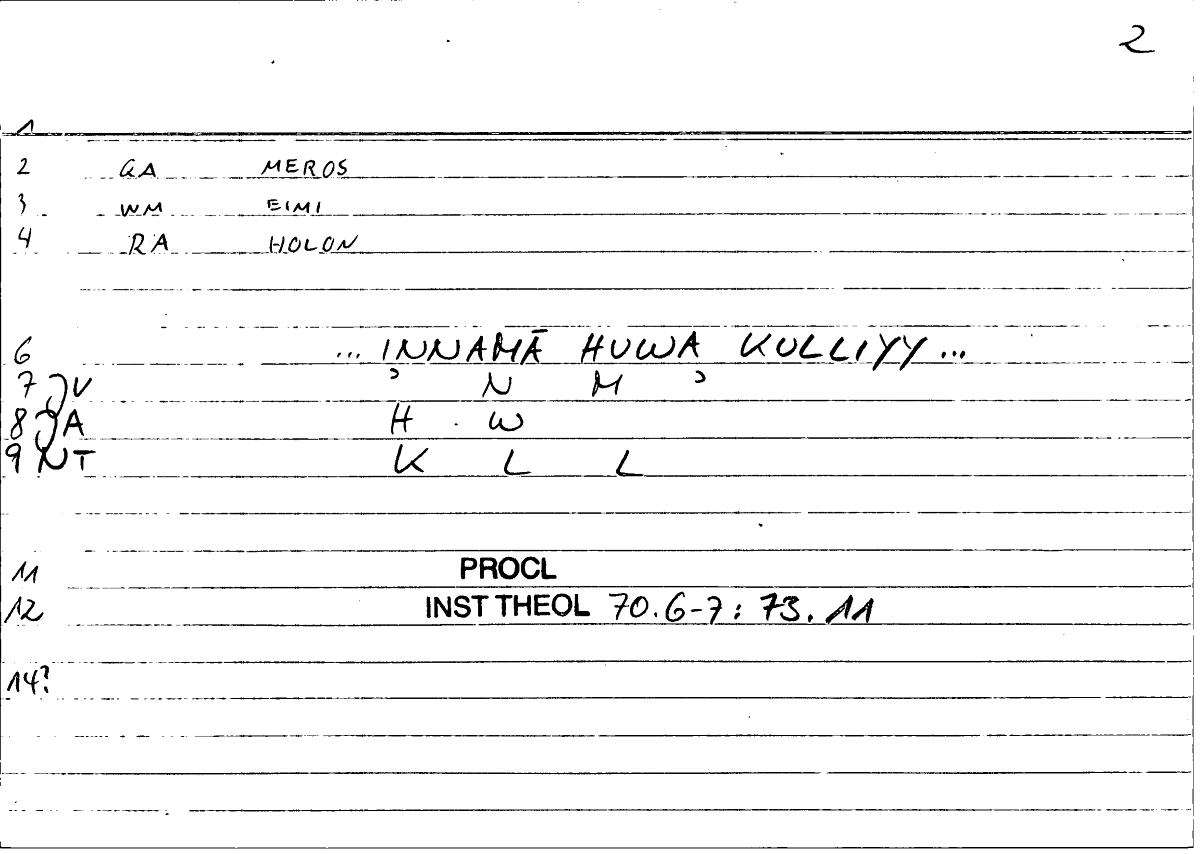 2
1
2 GA MEROS
3 WM EIMI
4 RA HOLON
6 ... INNAMĀ HUWA KULLIYY ...
7 JV ʾ N M ʾ
8 JA H W
9 NT K L L
11 PROCL
12 INST THEOL 70.6-7: 73.11
14?